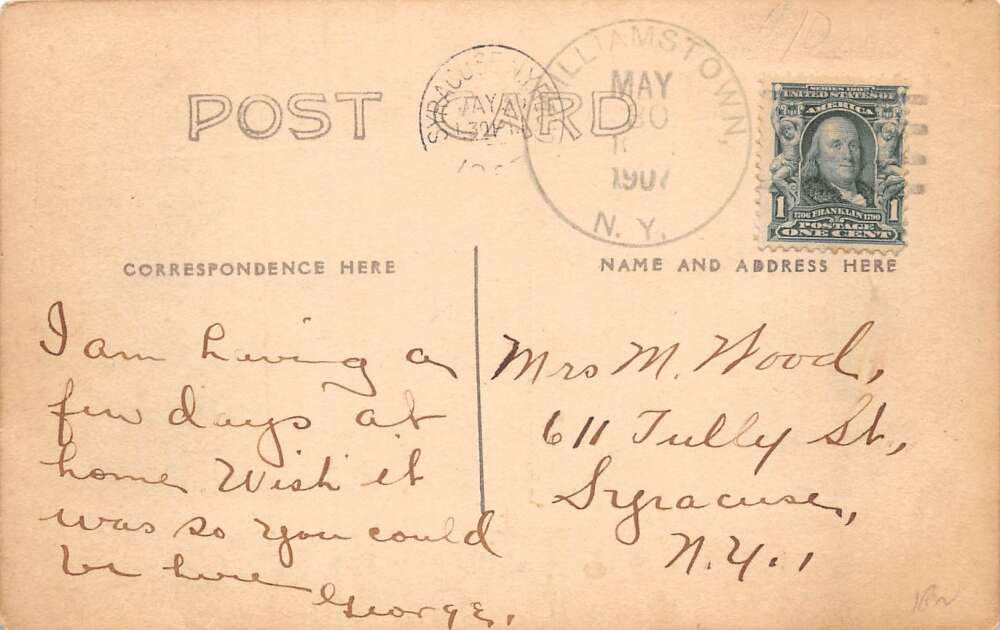 POST CARD
SYRACUSE, N.Y.
MAY
WILLIAMSTOWN
MAY
30
1907
N. Y.
SERIES 1902
UNITED STATES OF
AMERICA
1 1706 FRANKLIN 1790 1
POSTAGE
ONE CENT
CORRESPONDENCE HERE
NAME AND ADDRESS HERE
I am having a
few days at
home. Wish it
was so you could
be here
George.
Mrs M. Wood,
611 Tully St.,
Syracuse,
N.Y.